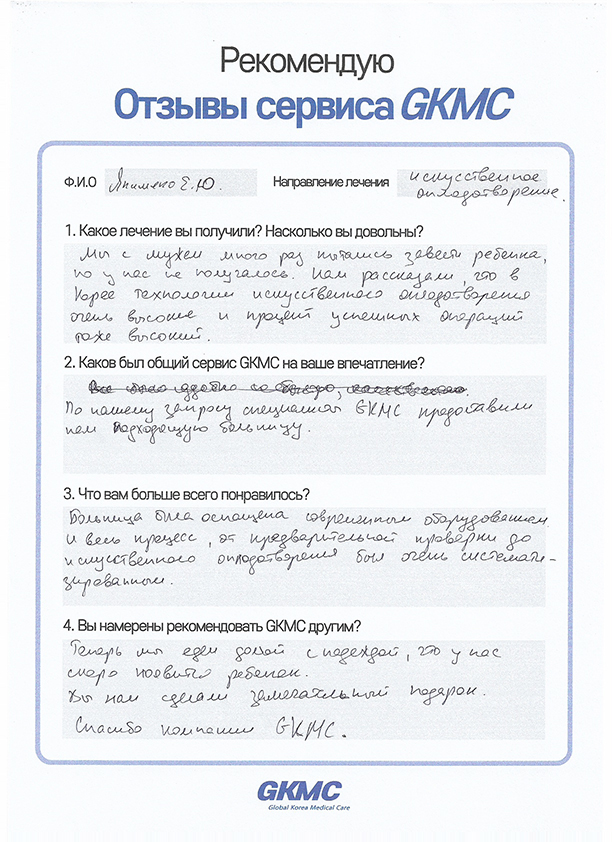 Рекомендую
Отзывы сервиса GKMC
Ф.И.О Якименко Е.Ю. Направление лечения искусственное
оплодотворение.
1. Какое лечение вы получили? Насколько вы довольны?
Мы с мужем много раз пытались завести ребенка,
но у нас не получалось. Нам рассказали, что в
Корее технологии искусственного оплодотворения
очень высокие и процент успешных операций
тоже высокий.
2. Каков был общий сервис GKMC на ваше впечатление?
По нашему запросу специалисты GKMC предоставили
нам подходящую больницу.
3. Что вам больше всего понравилось?
Больница была оснащена современным оборудованием
и весь процесс, от предварительной проверки до
искусственного оплодотворения был очень системати-
зированным.
4. Вы намерены рекомендовать GKMC другим?
Теперь мы едем домой с надеждой, что у нас
скоро появится ребенок.
Вы нам сделали замечательный подарок.
Спасибо компании GKMC.
GKMC
Global Korea Medical Care